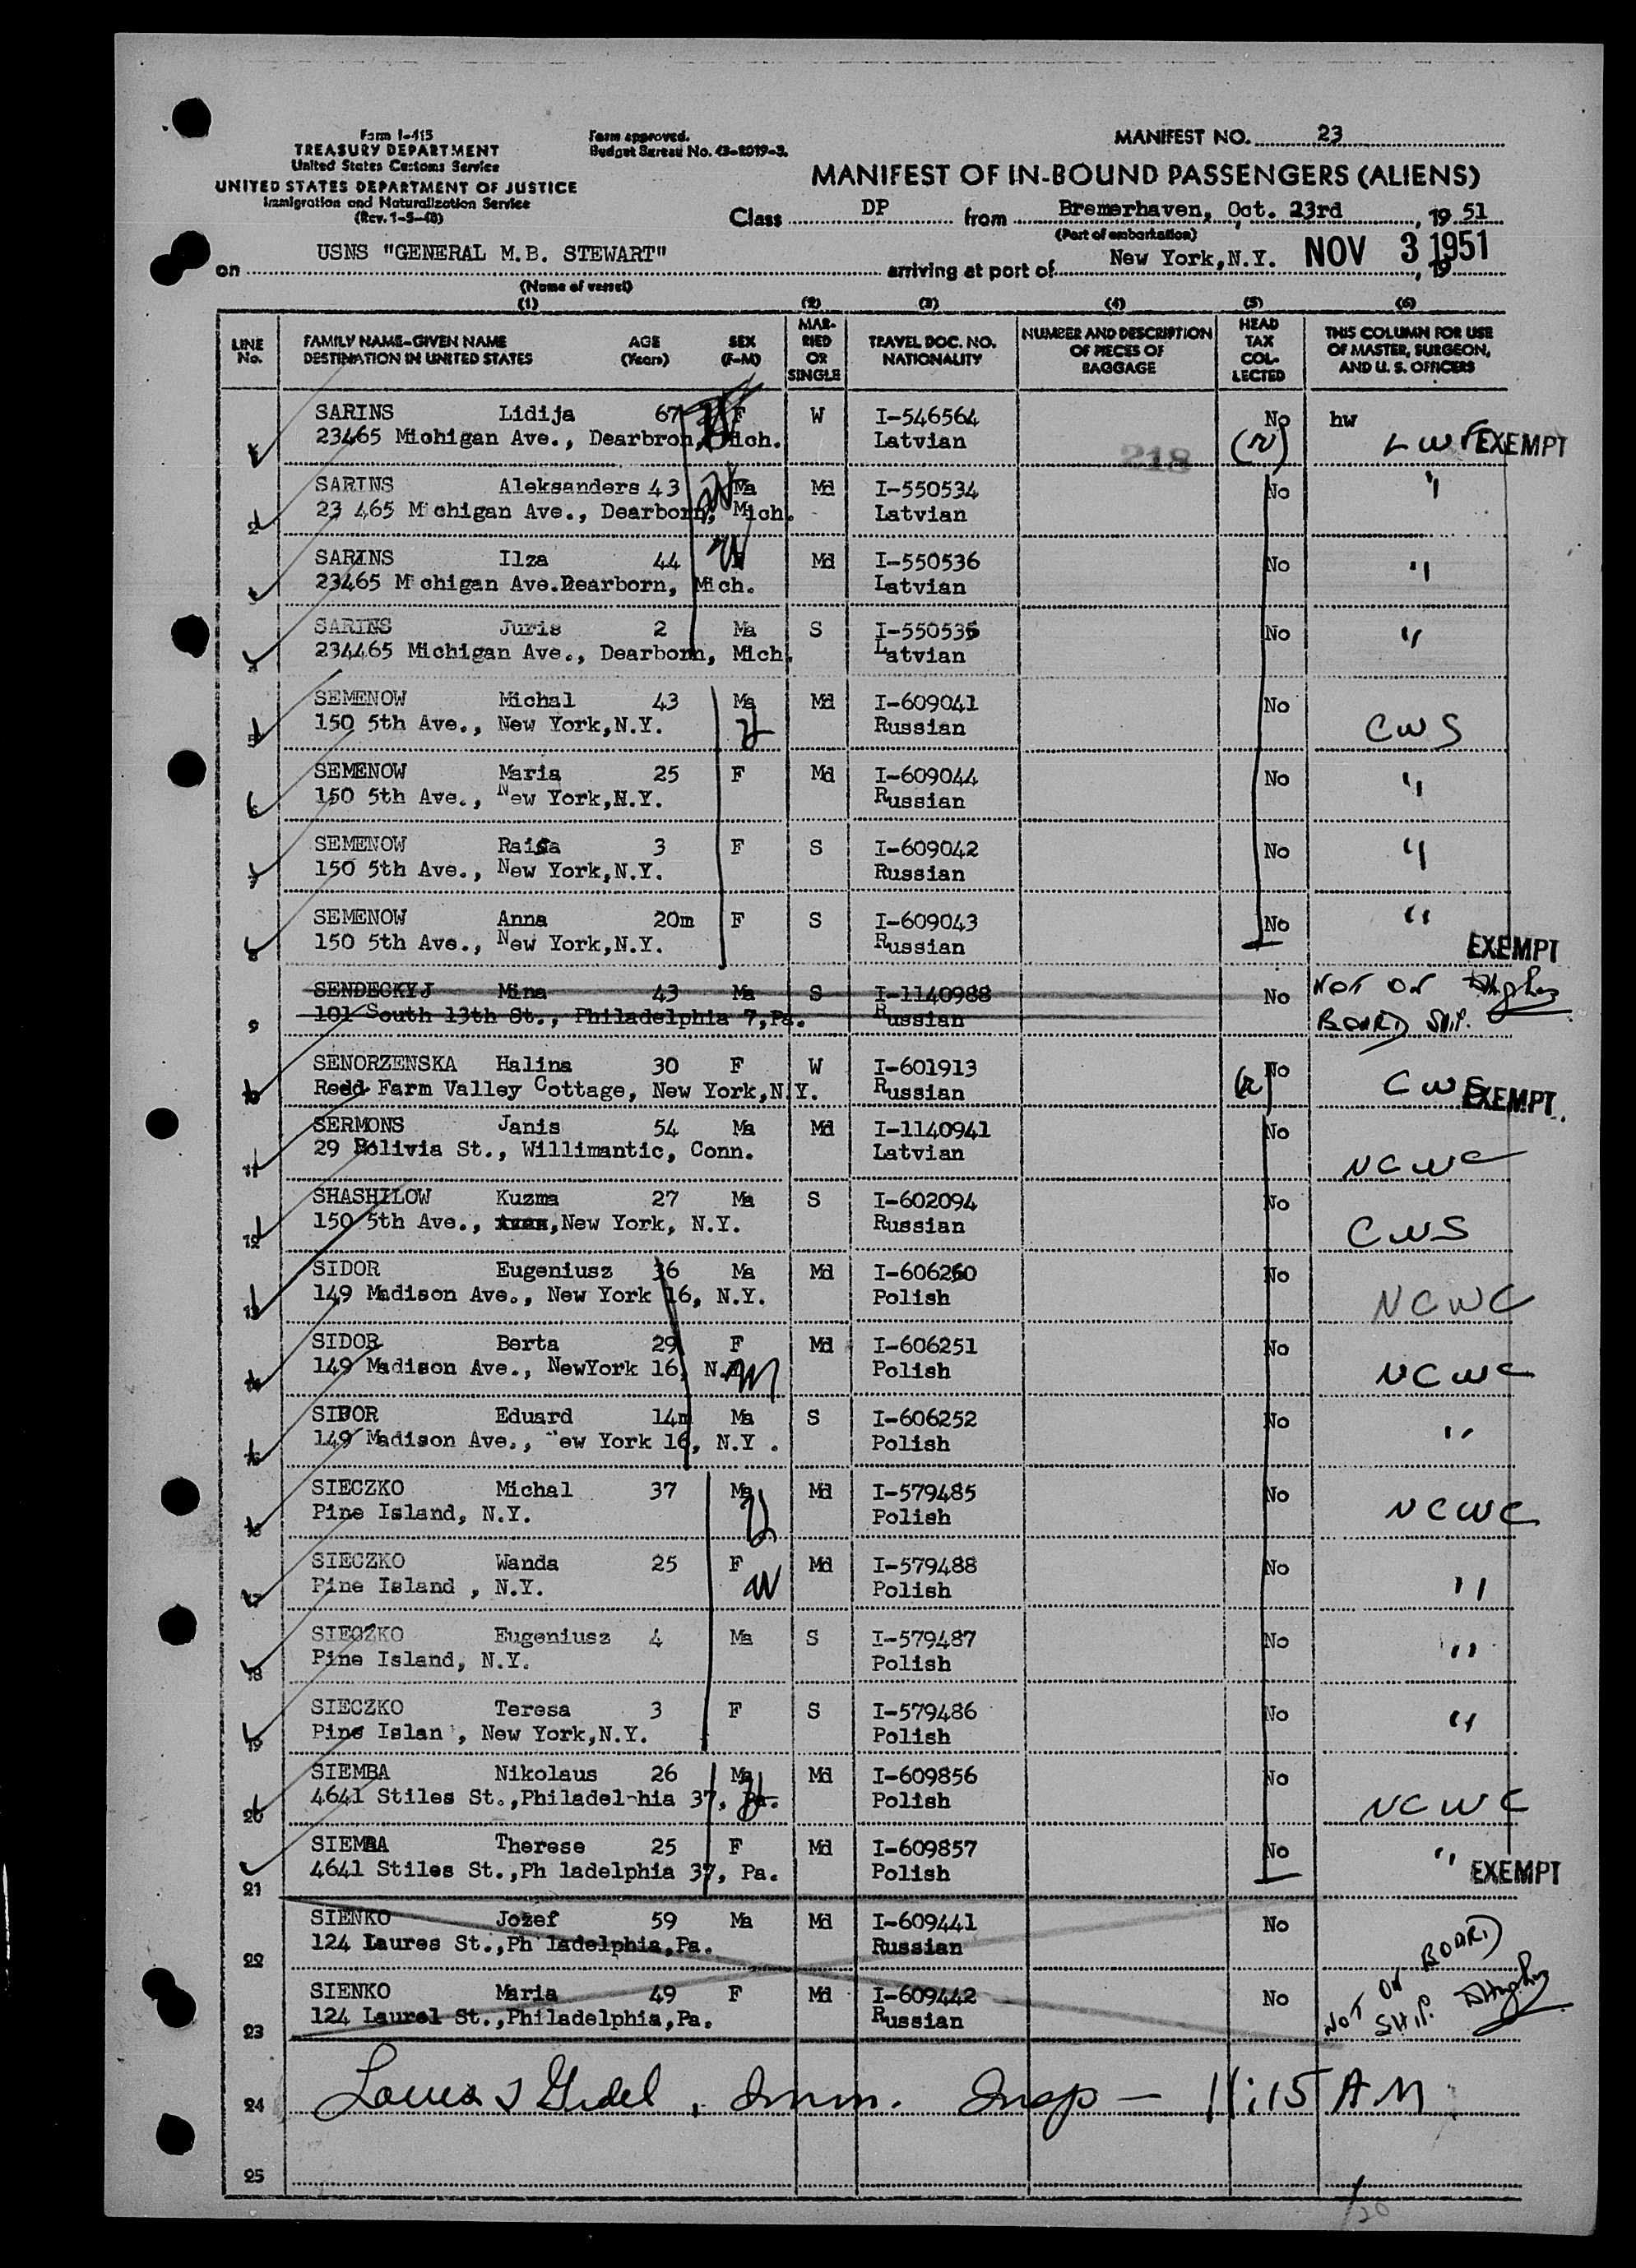 Form I-415
TREASURY DEPARTMENT
United States Customs Service
UNITED STATES DEPARTMENT OF JUSTICE
Immigration and Naturalization Service
(Rev. 1-5-48)
Form approved.
Budget Bureau No. 43-R019-3.
MANIFEST NO. 23
MANIFEST OF IN-BOUND PASSENGERS (ALIENS)
Class DP from Bremerhaven, Oct. 23rd, 19 51
(Port of embarkation)
on USNS "GENERAL M.B. STEWART" arriving at port of New York,N.Y. NOV 3 1951, 19
(Name of vessel)
(1) (2) (3) (4) (5) (6)
LINE No.
FAMILY NAME-GIVEN NAME DESTINATION IN UNITED STATES
AGE (Years)
SEX (F-M)
MARRIED OR SINGLE
TRAVEL DOC. NO. NATIONALITY
NUMBER AND DESCRIPTION OF PIECES OF BAGGAGE
HEAD TAX COLLECTED
THIS COLUMN FOR USE OF MASTER, SURGEON, AND U. S. OFFICERS
1 SARINS Lidija 67 F W I-546564 No hw
23465 Michigan Ave., Dearbron, Mich. Latvian 218 LWF EXEMPT
2 SARINS Aleksanders 43 Ma Md I-550534 No "
23 465 M chigan Ave., Dearborn, Mich. Latvian
SARINS Ilza 44 Md I-550536 No "
23465 M chigan Ave.Dearborn, Mich. Latvian
SARINS Juris 2 Ma S I-550535 No "
234465 Michigan Ave., Dearborn, Mich. Latvian
5 SEMENOW Michal 43 Ma Md I-609041 No
150 5th Ave., New York,N.Y. Russian CWS
6 SEMENOW Maria 25 F Md I-609044 No "
150 5th Ave., New York,N.Y. Russian
7 SEMENOW Raisa 3 F S I-609042 No "
150 5th Ave., New York,N.Y. Russian
8 SEMENOW Anna 20m F S I-609043 No "
150 5th Ave., New York,N.Y. Russian EXEMPT
9 SENDECKYJ Mina 43 Ma S I-1140988 No NOT ON
101 South 13th St., Philadelphia 7,Pa. Russian BOARD SHIP.
10 SENORZENSKA Halina 30 F W I-601913 No CWS
Redd Farm Valley Cottage, New York,N.Y. Russian EXEMPT
11 SERMONS Janis 54 Ma Md I-1140941 No
29 Bolivia St., Willimantic, Conn. Latvian NCWC
12 SHASHILOW Kuzma 27 Ma S I-602094 No
150 5th Ave., New York, N.Y. Russian CWS
13 SIDOR Eugeniusz 36 Ma Md I-606260 No
149 Madison Ave., New York 16, N.Y. Polish NCWC
14 SIDOR Berta 29 F Md I-606251 No
149 Madison Ave., NewYork 16, N.Y. Polish NCWC
15 SIDOR Eduard 14m Ma S I-606252 No "
149 Madison Ave., New York 16, N.Y . Polish
16 SIECZKO Michal 37 Ma Md I-579485 No
Pine Island, N.Y. Polish NCWC
17 SIECZKO Wanda 25 F Md I-579488 No "
Pine Island , N.Y. Polish
18 SIECZKO Eugeniusz 4 Ma S I-579487 No "
Pine Island, N.Y. Polish
19 SIECZKO Teresa 3 F S I-579486 No "
Pine Islan , New York,N.Y. Polish
20 SIEMBA Nikolaus 26 Ma Md I-609856 No
4641 Stiles St.,Philadel-hia 37, Pa. Polish NCWC
21 SIEMBA Therese 25 F Md I-609857 No "
4641 Stiles St.,Ph ladelphia 37, Pa. Polish EXEMPT
22 SIENKO Jozef 59 Ma Md I-609441 No
124 Laures St.,Ph ladelphia,Pa. Russian
23 SIENKO Maria 49 F Md I-609442 No NOT ON BOARD SHIP.
124 Laurel St.,Philadelphia,Pa. Russian
24 Louis J Gidel, Imm. Insp — 11:15 AM
25